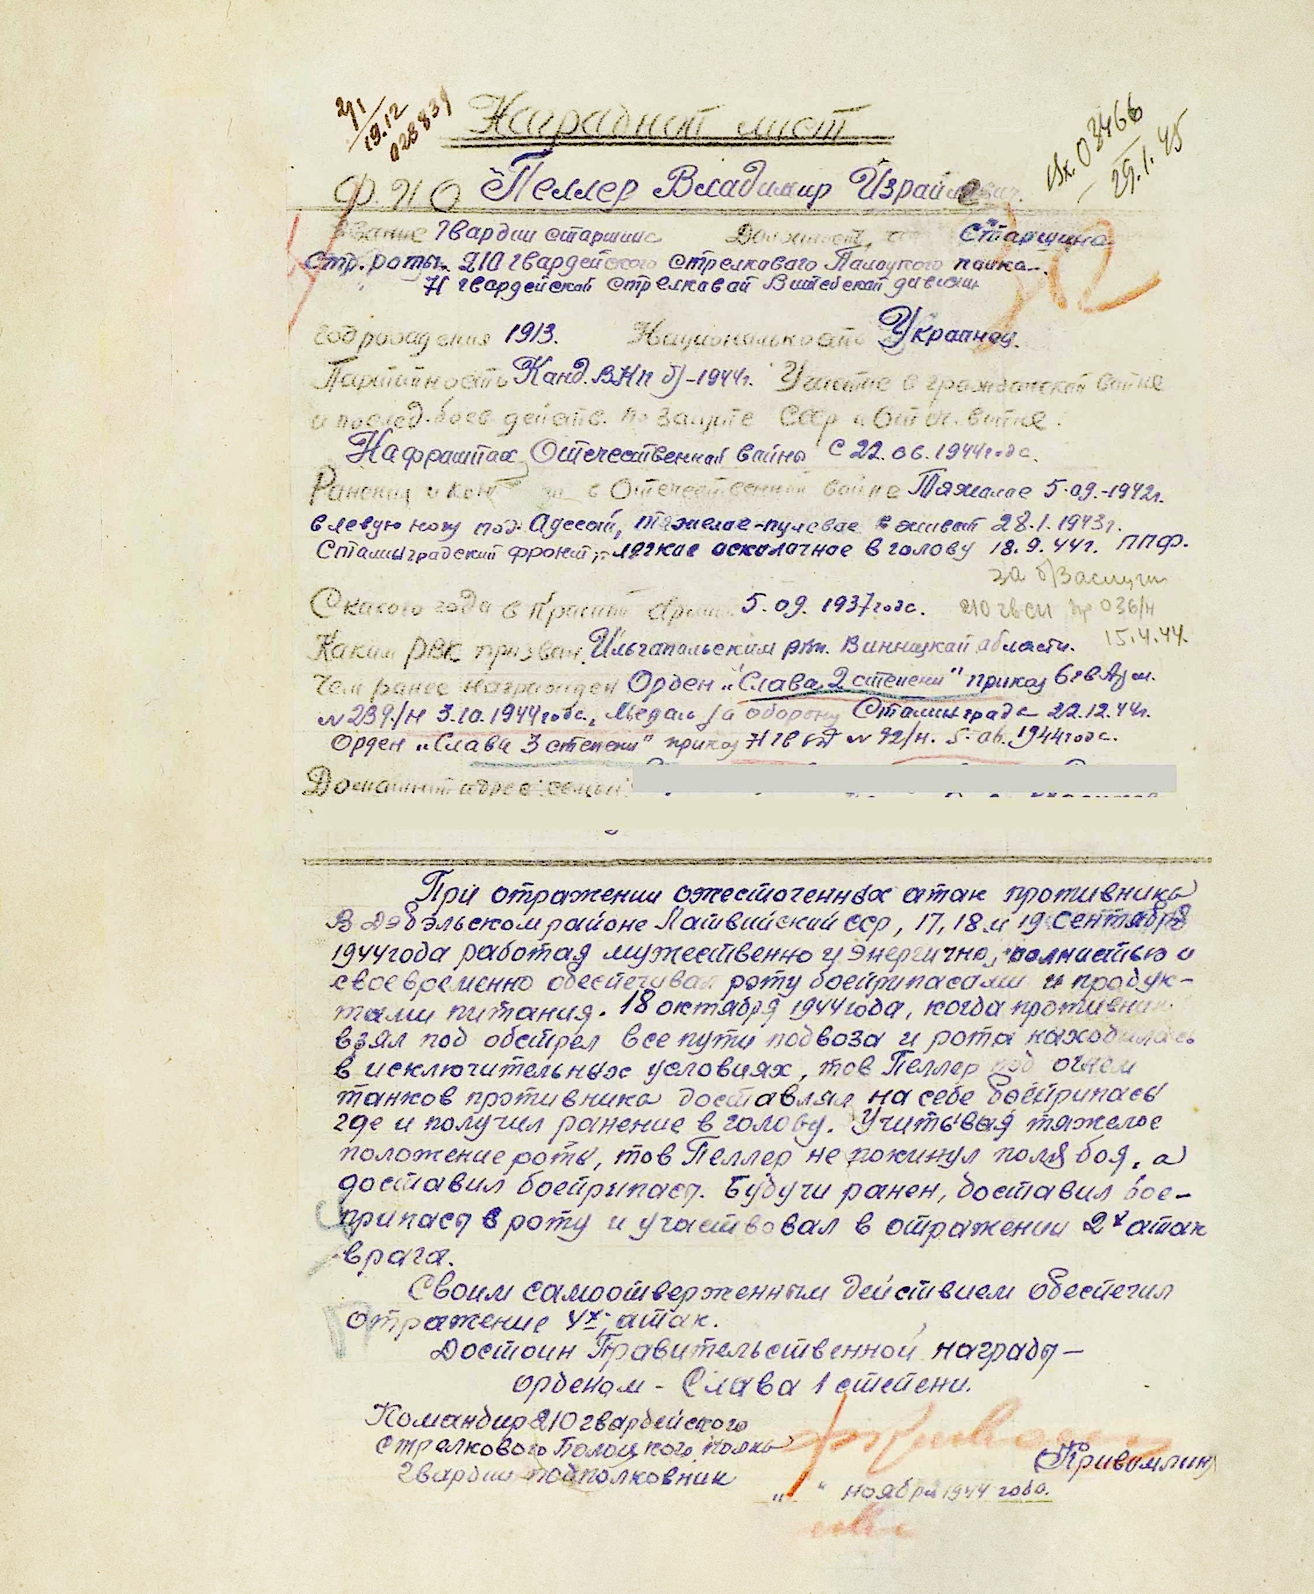 291
19.12
028839
Наградной лист
Вх. 03466
29.1.45
Ф.И.О. Пеллер Владимир Израйлевич.
Звание Гвардии старшина Должность, Старшина
стр. роты. 210 гвардейского стрелкового Полоцкого полка.
71 гвардейской стрелковой Витебской дивизии
Год рождения 1913. Национальность Украинец.
Партийность Канд. ВКП б)-1944г. Участие в гражданской войне
и послед. боев. действ. по защите СССР и Отеч. войне.
На фронтах Отечественной войны с 22.06.1944 года.
Ранения и конт в Отечественной войне Тяжелое 5.09.-1942г.
в левую ногу под Адесой, тяжелое-пулевое в живот 28.1.1943г.
Сталинградский фронт, легкое осколочное в голову 18.9.44г. ППФ.
за б/заслуги
С какого года в Красной Армии 5.09.1937 года. 210 гвсп пр 036/н
15.4.44.
Каким РВК призван. Ильчапольским рвк. Винницкой области.
Чем ранее награжден Орден "Слава 2 степени" приказ 6 гв Арм.
№ 239/н 3.10.1944 года, Медаль за оборону Сталинграда 22.12.44г.
Орден "Слава 3 степени" приказ 71 гв сд № 92/н. 5.06.1944 года.
Домашний адрес семьи:
При отражении ожесточенных атак противника
в Дэбэльском районе Латвийский сср, 17, 18 и 19 сентября
1944 года работая мужественно и энергично, полностью и
своевременно обеспечивал роту боеприпасами и продук-
тами питания. 18 октября 1944 года, когда противник
взял под обстрел все пути подвоза и рота находилась
в исключительных условиях, тов Пеллер под огнем
танков противника доставлял на себе боеприпасы
где и получил ранение в голову. Учитывая тяжелое
положение роты, тов Пеллер не покинул поля боя, а
доставил боеприпасы. Будучи ранен, доставил бое-
припасы в роту и участвовал в отражении 2х атак
врага.
Своим самоотверженным действием обеспечил
отражение 4х атак.
Достоин Правительственной награды —
орденом - Слава 1 степени.
Командир 210 гвардейского
стрелкового Полоцкого полка
Гвардии подполковник (Кривомлин)
" " ноября 1944 года.